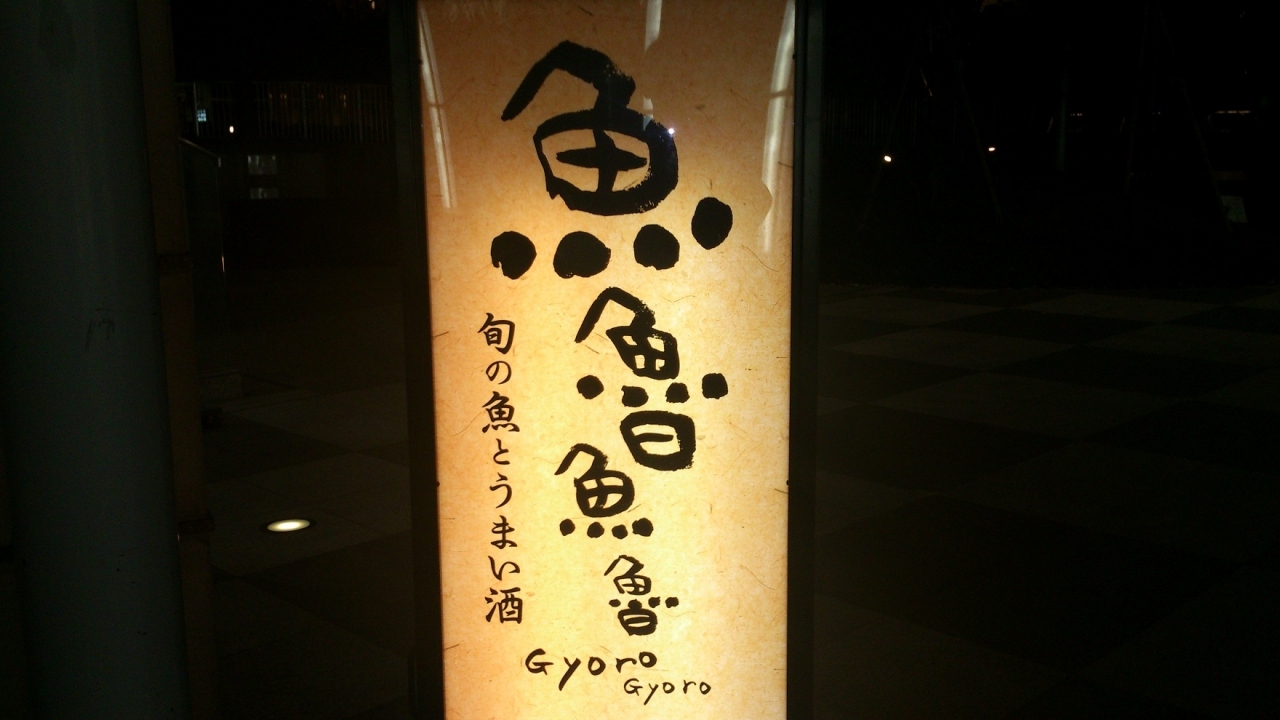 魚魯魚魯
旬の魚とうまい酒
Gyoro
Gyoro